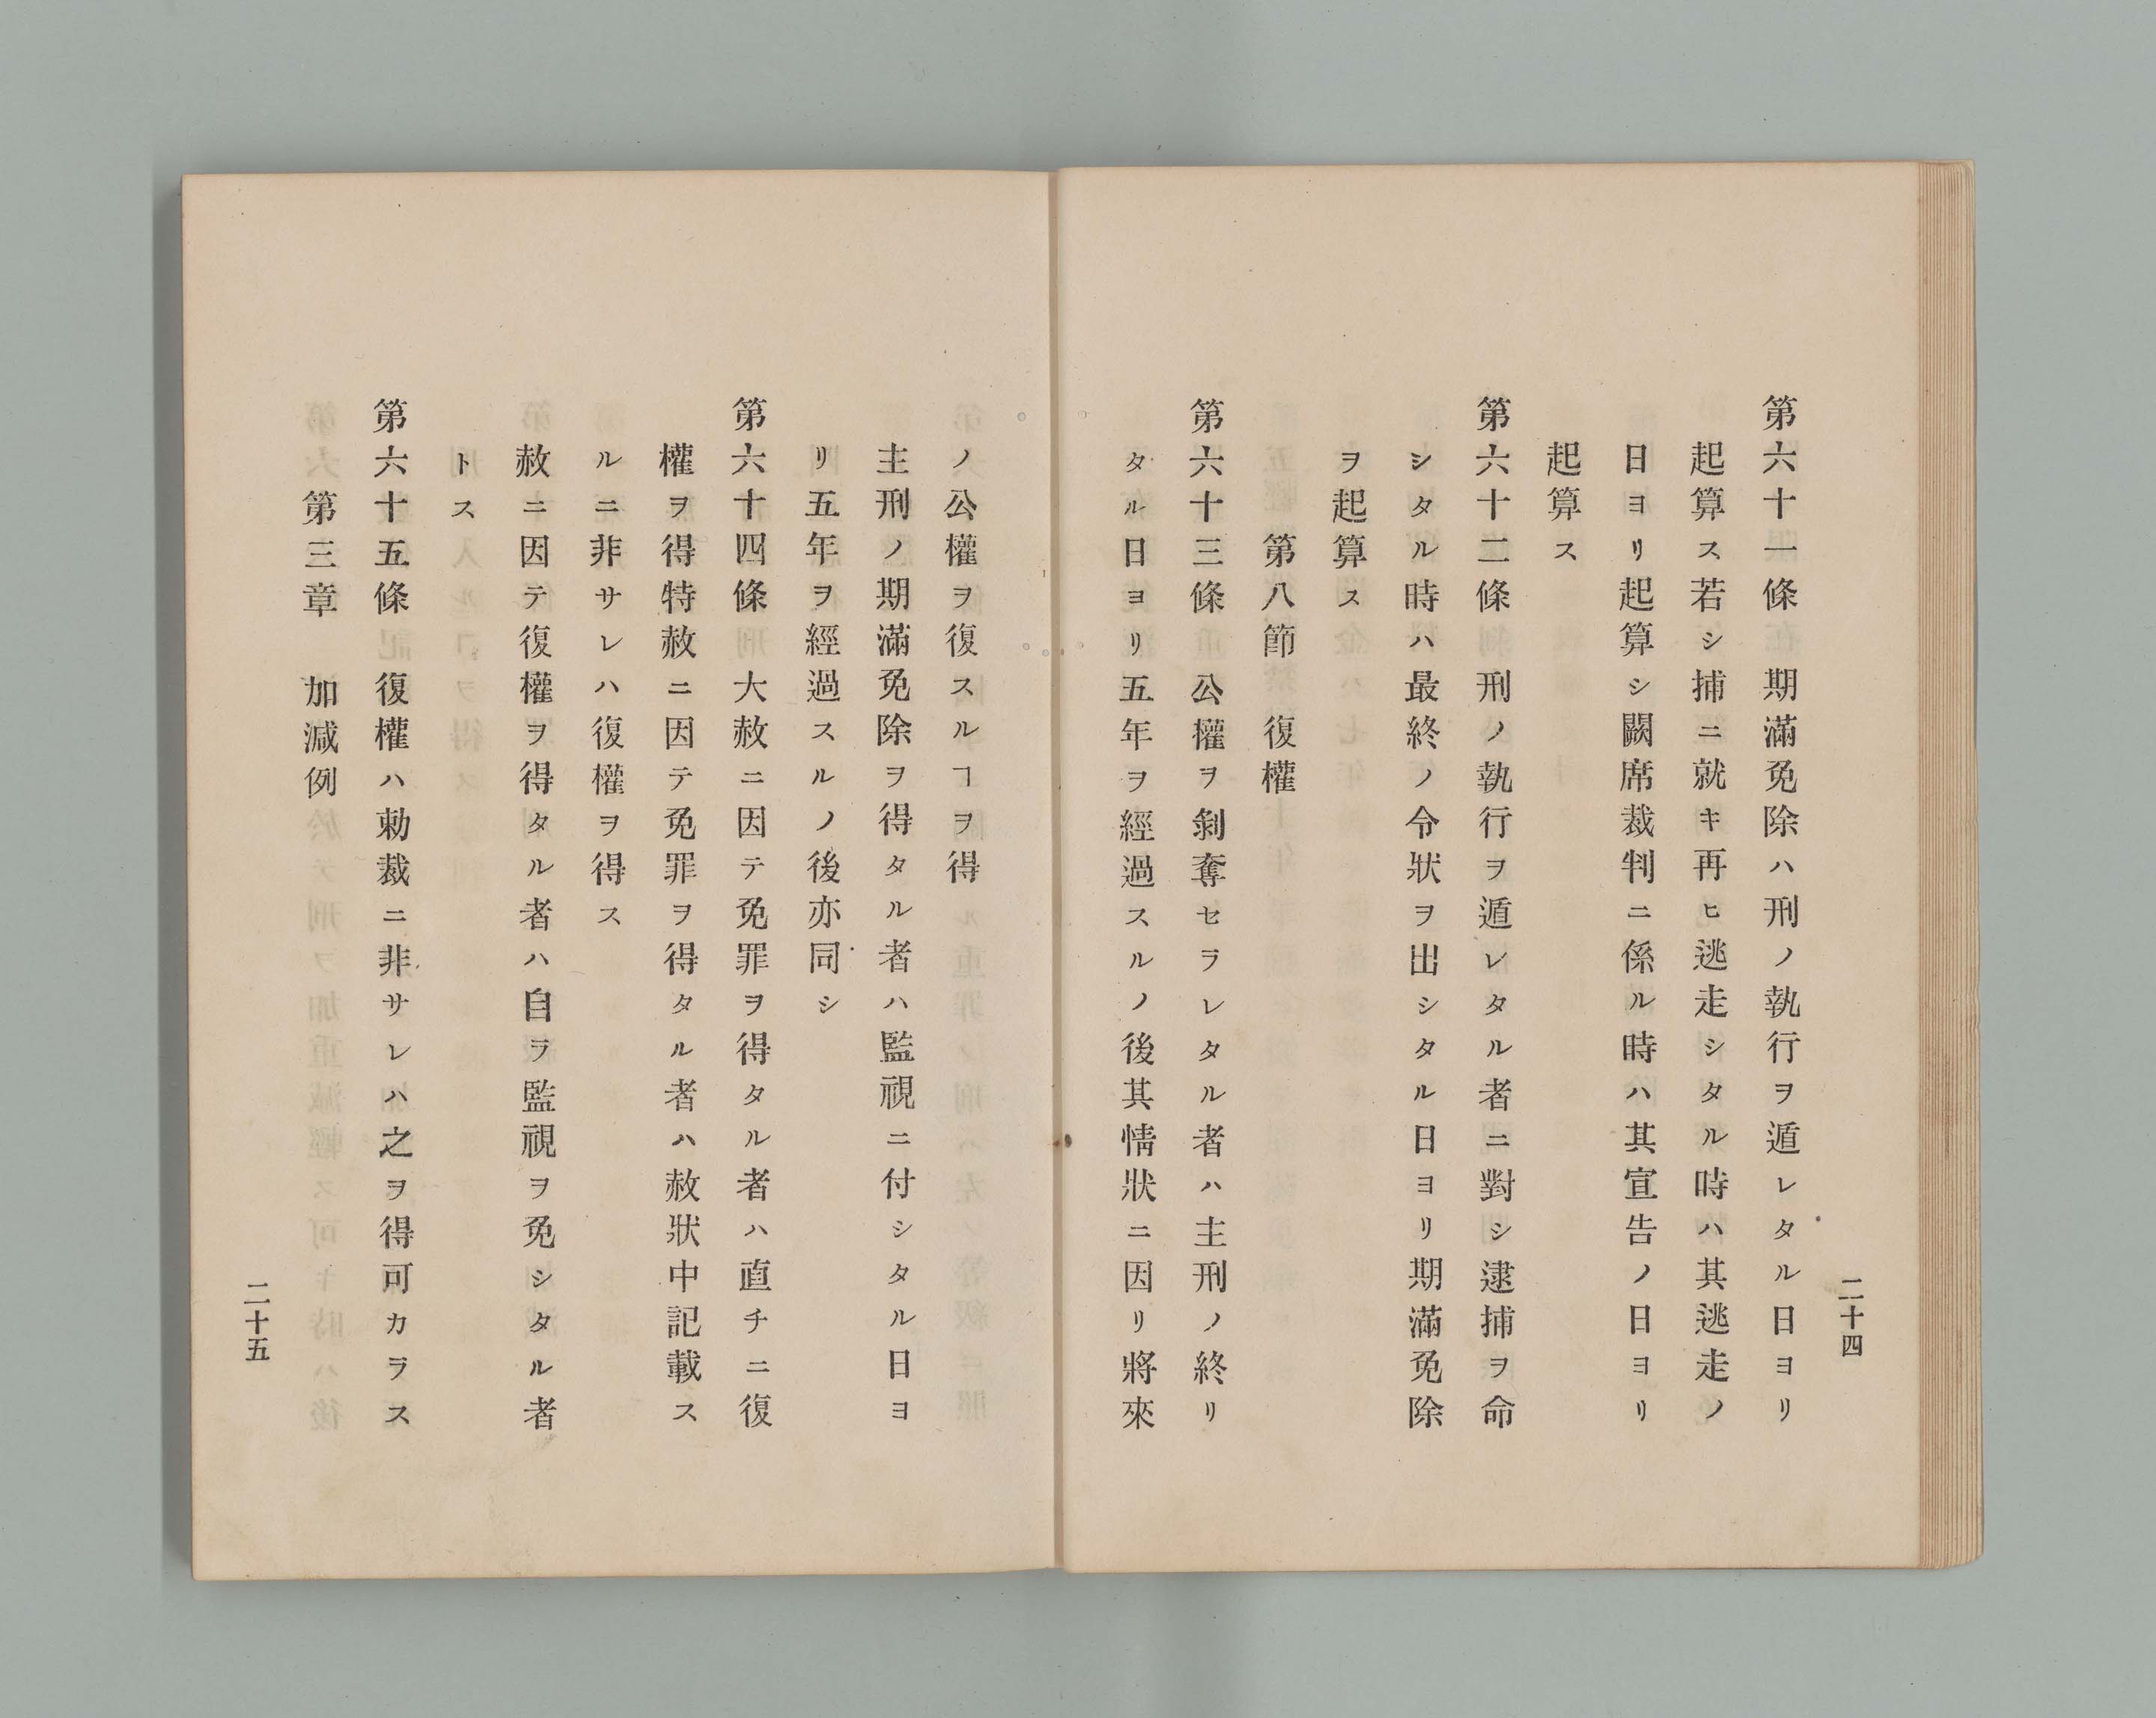 二十四
第六十一條　期滿免除ハ刑ノ執行ヲ遁レタル日ヨリ
起算ス若シ捕ニ就キ再ヒ逃走シタル時ハ其逃走ノ
日ヨリ起算シ闕席裁判ニ係ル時ハ其宣告ノ日ヨリ
起算ス
第六十二條　刑ノ執行ヲ遁レタル者ニ對シ逮捕ヲ命
シタル時ハ最終ノ令狀ヲ出シタル日ヨリ期滿免除
ヲ起算ス
第八節　復權
第六十三條　公權ヲ剝奪セラレタル者ハ主刑ノ終リ
タル日ヨリ五年ヲ經過スルノ後其情狀ニ因リ將來
ノ公權ヲ復スルヿヲ得
主刑ノ期滿免除ヲ得タル者ハ監視ニ付シタル日ヨ
リ五年ヲ經過スルノ後亦同シ
第六十四條　大赦ニ因テ免罪ヲ得タル者ハ直チニ復
權ヲ得特赦ニ因テ免罪ヲ得タル者ハ赦狀中記載ス
ルニ非サレハ復權ヲ得ス
赦ニ因テ復權ヲ得タル者ハ自ラ監視ヲ免シタル者
トス
第六十五條　復權ハ勅裁ニ非サレハ之ヲ得可カラス
第三章　加減例
二十五